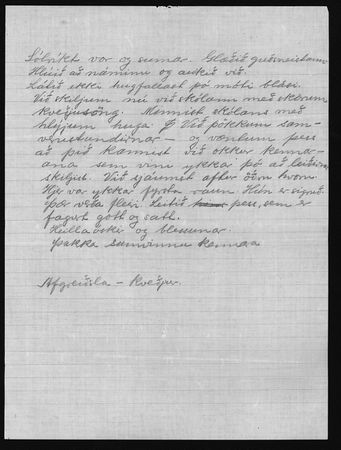 Sólríkt vor og sumar. Glæðið guðsneistann
Hlúið að náminu og aukið við.
Látið ekki hugfallast þó móti blási.
Við skiljum nú við skólann með skærum
kveðjusöng. Minnist skólans með
hlýjum huga. Við þökkum sam-
verustundirnar – og væntum þess
að þið kannist við okkur kennar-
ana sem vini ykkar þó að leiðir
skiljist. Við sjáumst aftur öðru hvoru.
Hjer var ykkar fyrsta raun. Hún er sigruð
Þær verða fleiri. Leitið þess, sem er
fagurt gott og satt.
Heillaóskir og blessunar
þakka samvinnu kennara
Afgreiðsla – Kveðjur.